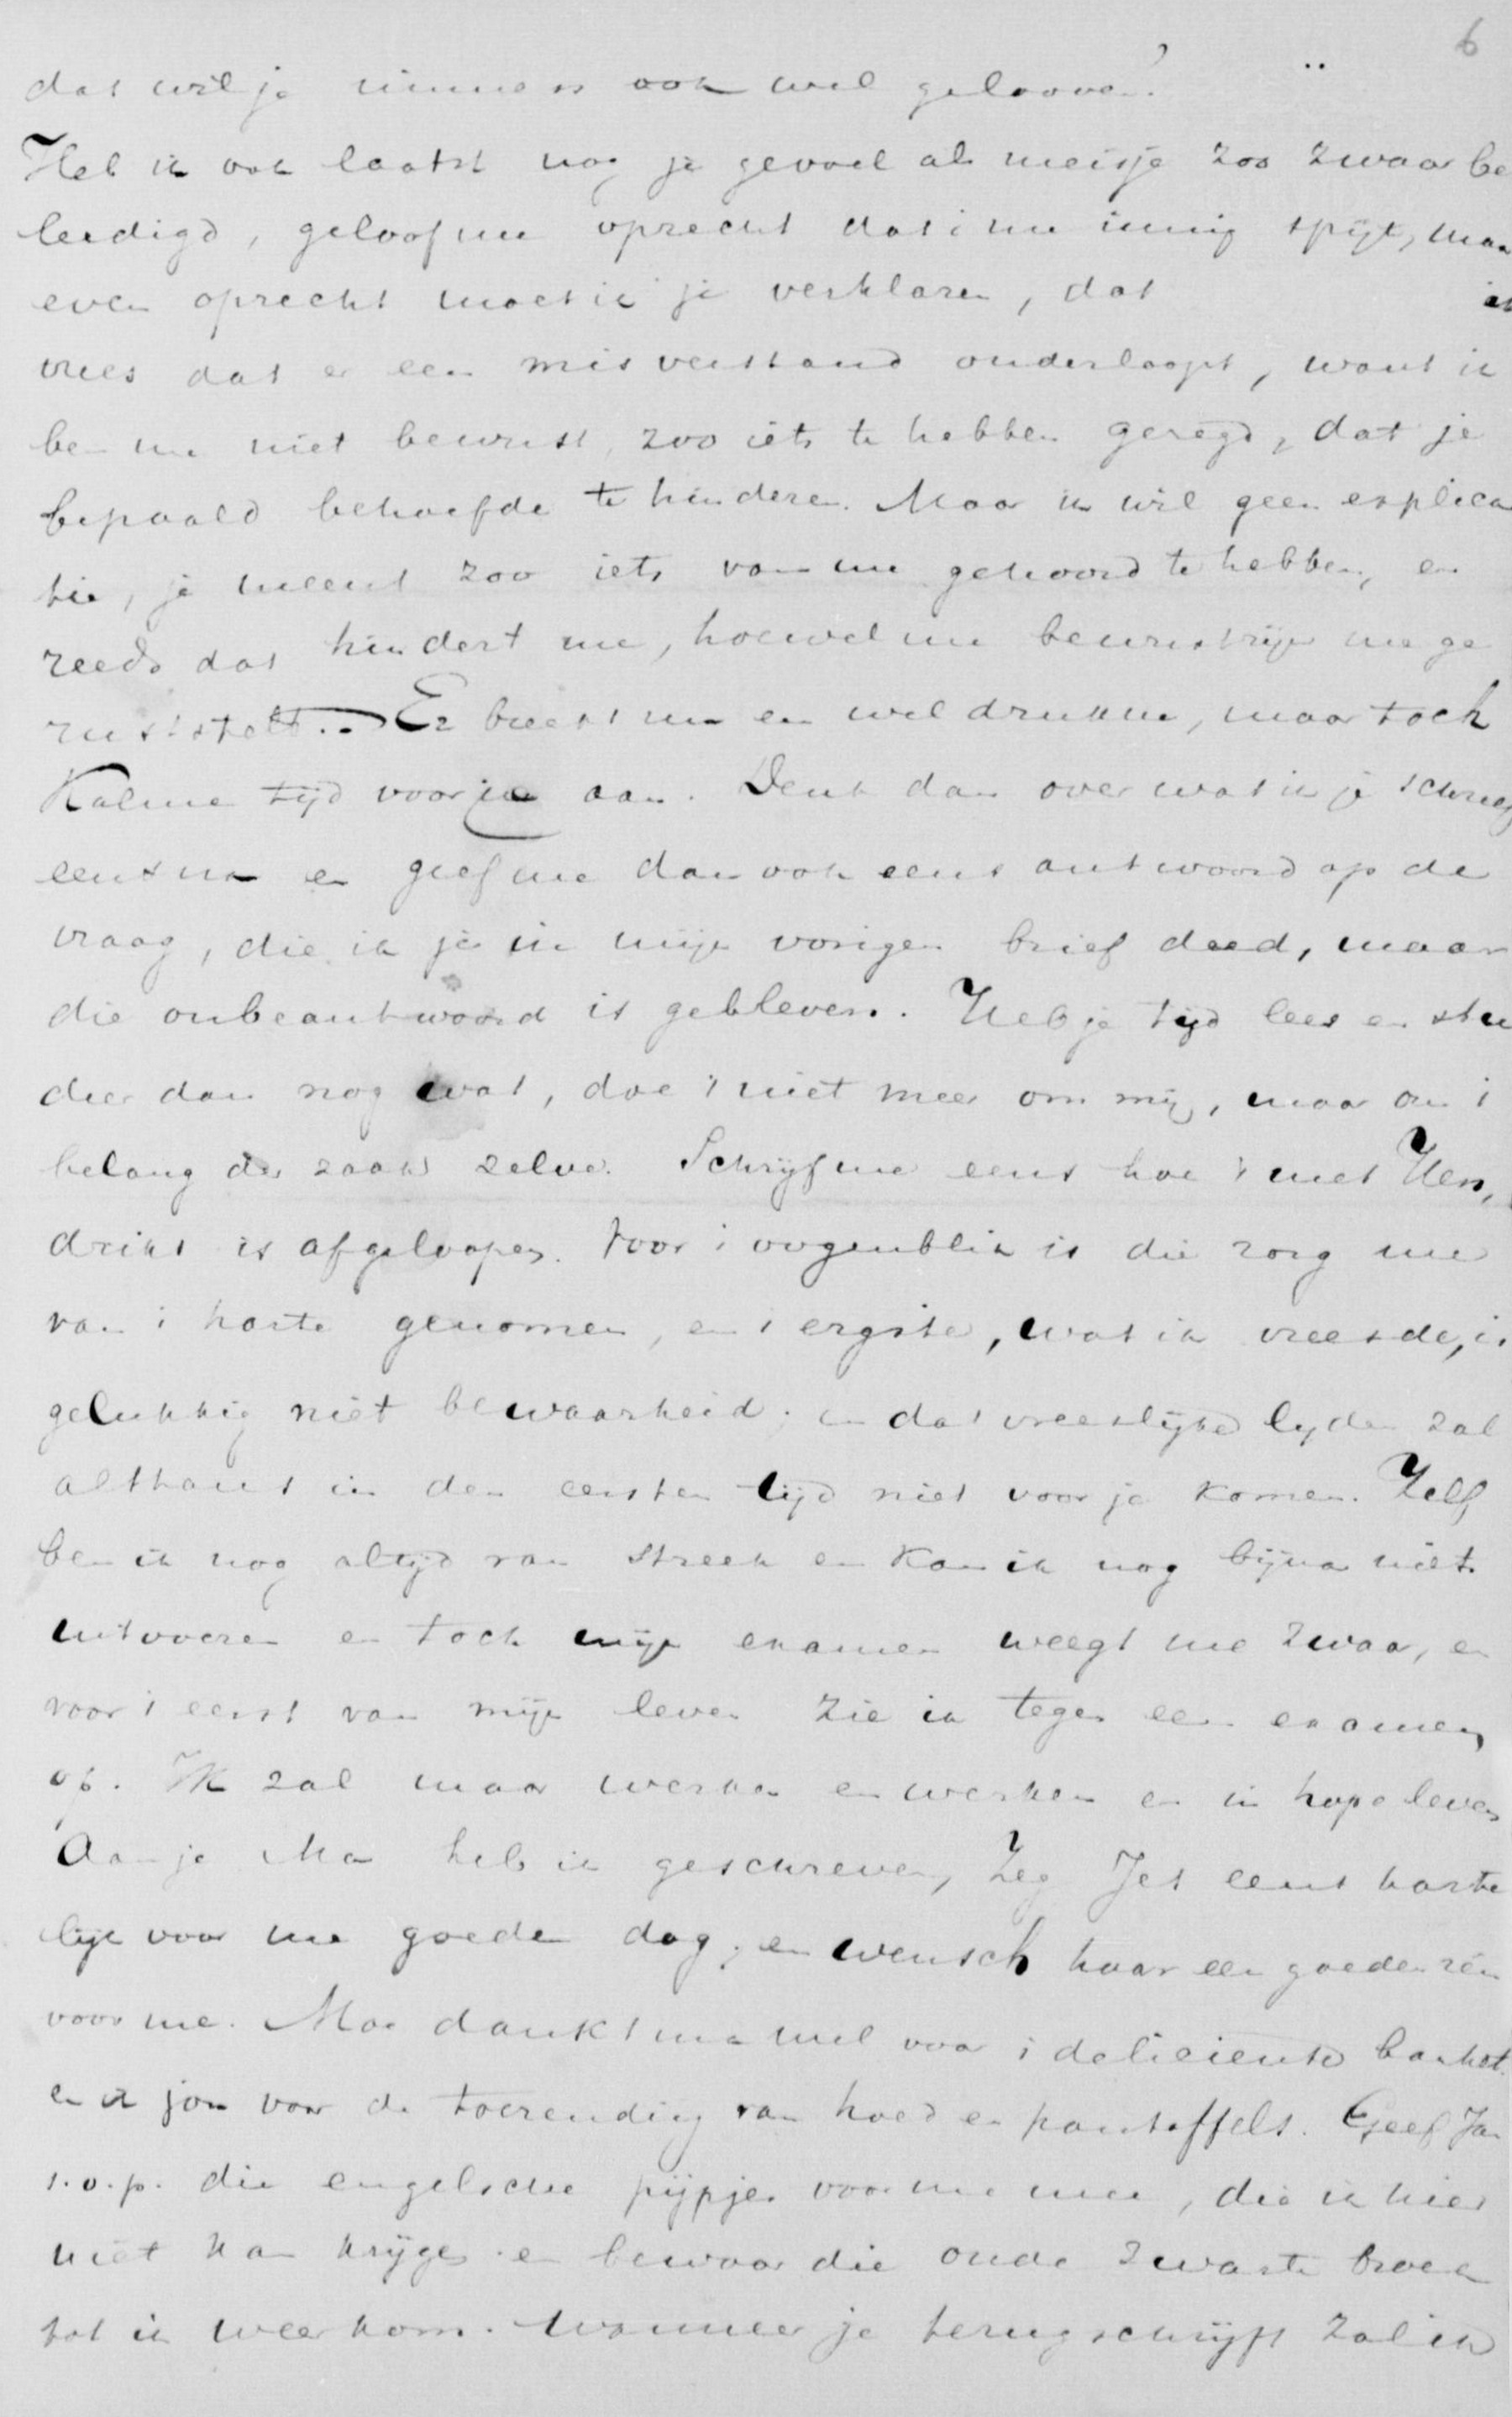 6
dat wil je immers ook wel gelooven?
Heb ik ook laatst nog je gevoel als meisje zoo zwaar be
leedigd, geloof me oprecht dat 't me innig spijt, maar
even oprecht moet ik je verklaren, dat ik
vrees dat er een misverstand onderloopt, want ik
ben me niet bewust, zoo iets te hebben gezegd, dat je
bepaald behoefde te hinderen. Maar ik wil geen explica
tie, je meent zoo iets van me gehoord te hebben, en
reeds dat hindert me, hoewel me bewustzijn me ge
ruststelt. Er breekt nu en wel drukke, maar toch
Kalme tijd voor je aan. Denk dan over wat ik je schreef
eens na en geef me dan ook eens antwoord op de
vraag, die ik je in mijn vorigen brief deed, maar
die onbeantwoord is gebleven. Heb je tijd lees en stu
deer dan nog wat, doe 't niet meer om mij, maar om 't
belang der zaak zelve. Schrijf me eens hoe 't met Hen,
driks is afgeloopen. Voor 't oogenblik is die zorg me
van 't harte genomen, en 't ergste, wat ik vreesde, is
gelukkig niet bewaarheid; en dat vreeslijke lijden zal
althans in den eersten tijd niet voor je komen. Zelf
ben ik nog altijd van streek en kan ik nog bijna niets
uitvoeren en toch mijn examen weegt me zwaar, en
voor 't eerst van mijn leven zie ik tegen een examen
op. Ik zal maar werken en werken en in hope leven
Aan je Ma heb ik geschreven, Zeg Jet eens harte
lijk voor me goeden dag, en wensch haar een goeden
voor me. Moe dankt me wel voor 't delicieuse banket
en ik jou voor de toezending van hoed en pantoffels. Geef Jan
s.v.p. die engelsche pijpjes voor me mee, die ik hier
niet kan krijgen en bewaar die oude zwarte broek
tot ik weerkom. Wanneer je terugschrijft zal ik